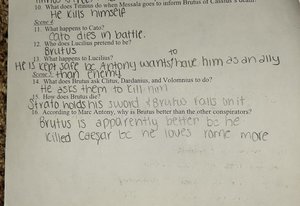 10. What does Titinius do when Messala goes to inform Brutus of Cassius's death?
He kills himself
Scene 4
11. What happens to Cato?
Cato dies in battle.
12. Who does Lucilius pretend to be?
Brutus
13. What happens to Lucilius?
to
He is kept safe bc Antony wants have him as an ally
Scene 5 than enemy
14. What does Brutus ask Clitus, Dardanius, and Volumnius to do?
He asks them to kill him
15. How does Brutus die?
Strato holds his sword & Brutus falls on it
16. According to Marc Antony, why is Brutus better than the other conspirators?
Brutus is apparently better bc he
killed Caesar bc he loves rome more